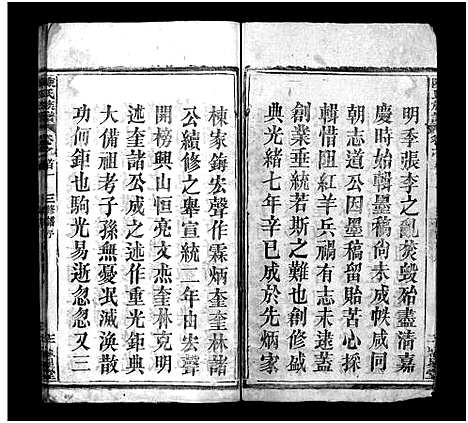 明季張李之亂焚毀殆盡清嘉
慶時始輯墨稿尚未成帙咸同
朝志道公因墨稿留貽苦心採
輯惜阻紅羊兵禍有志未遂蓋
創業垂統若斯之難也創修盛
典光緒七年辛巳成於先炳家
棟家鑄宏聲作霖炳奎奎林諸
公續修之舉宣統二年由宏聲
開榜興山恒亮文燕奎林克明
述奎諸公成之述作重光鉅典
大備祖考子孫無憂泯滅渙散
功何鉅也駒光易逝忽忽又三